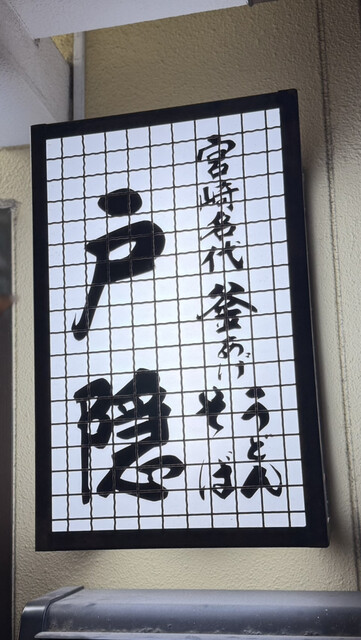 宮崎名代
釜あげ
うどん
そば
戸隠